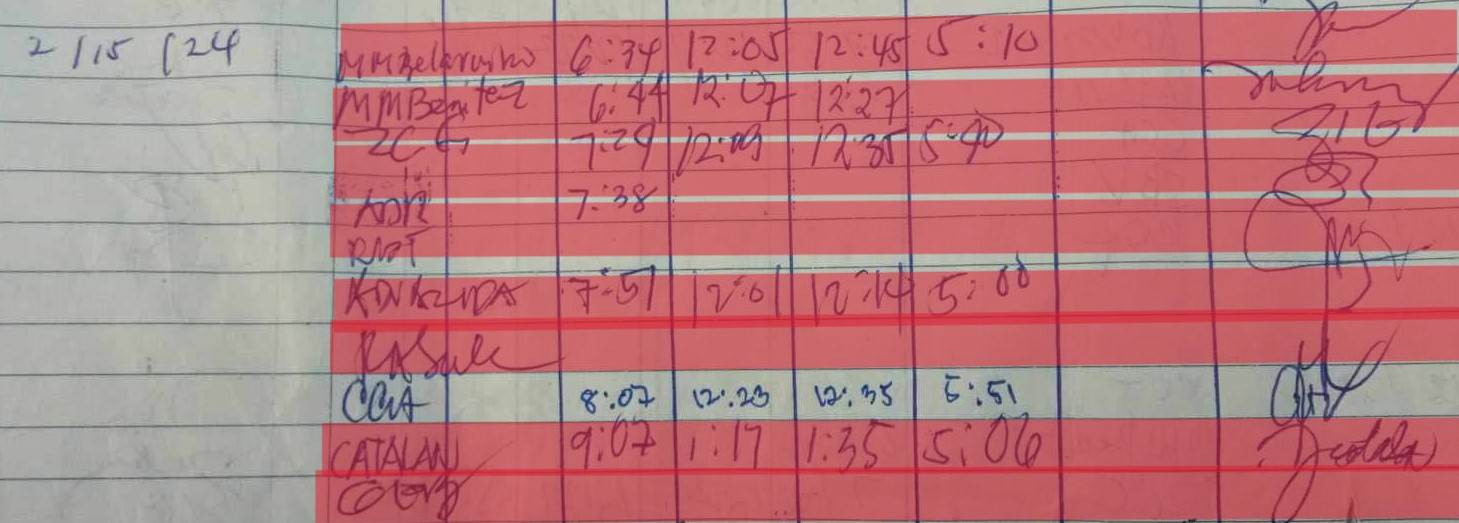 2/15/24 MMBelarmino 6:34 12:05 12:45 5:10
MMBenitez 6:44 12:07 12:27
ZCG 7:29 12:09 12:35 5:40
ADR 7:38
RMT
7:51 12:01 12:14 5:00
CCA 8:07 12:23 12:35 5:51
CATALAN 9:07 1:17 1:35 5:06